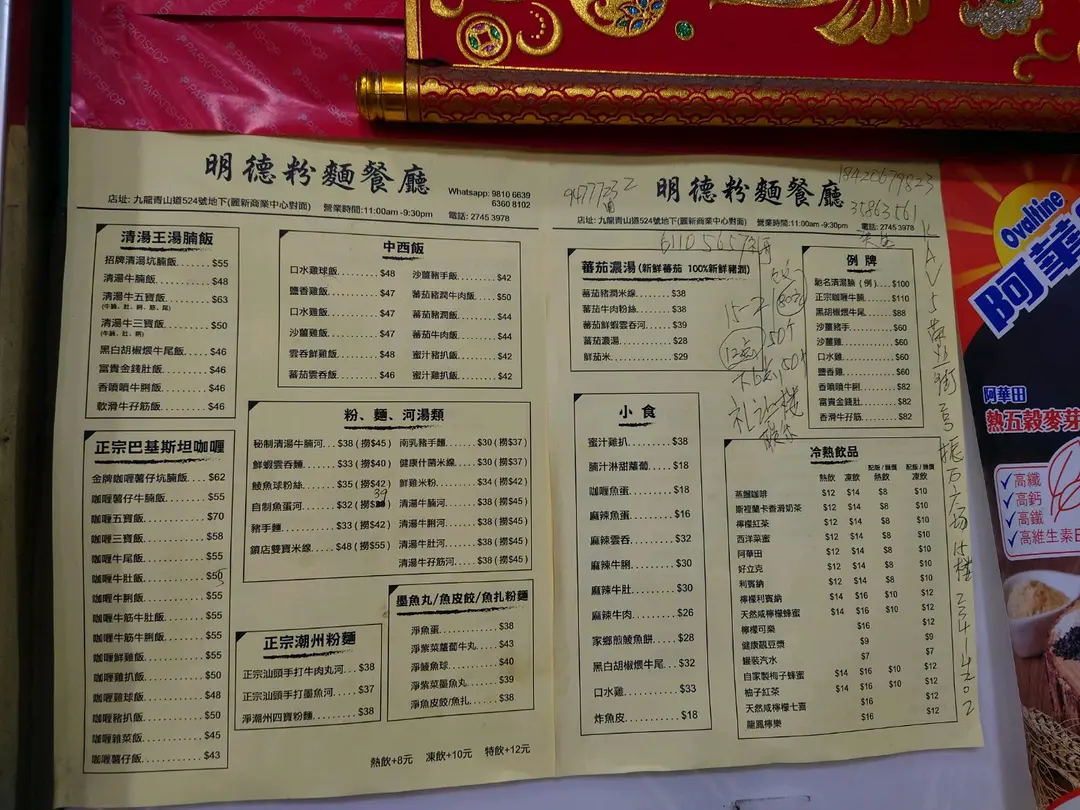 PARKNSHOP
明德粉麵餐廳
Whatsapp: 9810 6639
6360 8102
店址: 九龍青山道524號地下(麗新商業中心對面) 營業時間:11:00am -9:30pm 電話: 2745 3978
清湯王湯腩飯
招牌清湯坑腩飯 $55
清湯牛腩飯 $48
清湯牛五寶飯 $63
清湯牛三寶飯 $50
黑白胡椒煨牛尾飯 $46
富貴金錢肚飯 $46
香噴噴牛脷飯 $46
軟滑牛孖筋飯 $46
正宗巴基斯坦咖喱
金牌咖喱薯仔坑腩飯 $62
咖喱薯仔牛腩飯 $55
咖喱五寶飯 $70
咖喱三寶飯 $58
咖喱牛尾飯 $55
咖喱牛肚飯
咖喱牛脷飯 $55
咖喱牛筋牛肚飯 $55
咖喱牛筋牛脷飯 $55
咖喱鮮雞飯 $55
咖喱雞扒飯 $50
咖喱雞球飯 $48
咖喱豬扒飯 $50
咖喱雜菜飯 $45
咖喱薯仔飯 $43
中西飯
口水雞球飯 $48 沙薑豬手飯 $42
鹽香雞飯 $47 蕃茄豬潤牛肉飯 $50
口水雞飯 $47 蕃茄豬潤飯 $44
沙薑雞飯 $47 蕃茄牛肉飯 $44
雲吞鮮雞飯 $48 蜜汁豬扒飯 $42
蕃茄雲吞飯 $46 蜜汁雞扒飯 $42
粉、麵、河湯類
秘制清湯牛腩河 $38 (撈$45) 南乳豬手麵 $30 (撈$37)
鮮蝦雲吞麵 $33 (撈$40) 健康什菌米線 $30 (撈$37)
鯪魚球粉絲 $35 (撈$42) 鮮雞米粉 $34 (撈$42)
自制魚蛋河 $32 (撈$39) 清湯牛腩河 $38 (撈$45)
豬手麵 $33 (撈$42) 清湯牛脷河 $38 (撈$45)
鎮店雙寶米線 $48 (撈$55) 清湯牛肚河 $38 (撈$45)
清湯牛孖筋河 $38 (撈$45)
正宗潮州粉麵
正宗汕頭手打牛肉丸河 $38
正宗汕頭手打墨魚河 $37
淨潮州四寶粉麵 $38
墨魚丸/魚皮餃/魚扎粉麵
淨魚蛋 $38
淨紫菜蘿蔔牛丸 $43
淨鯪魚球 $40
淨紫菜墨魚丸 $39
淨魚皮餃/魚扎 $38
熱飲+8元 凍飲+10元 特飲+12元
明德粉麵餐廳
店址: 九龍青山道524號地下(麗新商業中心對面) 營業時間:11:00am -9:30pm 電話: 2745 3978
35863561
蕃茄濃湯 (新鮮蕃茄 100%新鮮豬潤)
蕃茄豬潤米線 $38
蕃茄牛肉粉絲 $38
蕃茄鮮蝦雲吞河 $39
蕃茄濃湯 $28
鮮茄米 $29
例牌
馳名清湯腩 (例) $100
正宗咖喱牛腩 $110
黑胡椒牛尾 $88
沙薑豬手 $60
沙薑雞 $60
口水雞 $60
鹽香雞 $60
香噴噴牛脷 $82
富貴金錢肚 $82
香滑牛孖筋 $82
小食
蜜汁雞扒 $38
腩汁淋甜蘿蔔 $18
咖喱魚蛋 $18
麻辣魚蛋 $16
麻辣雲吞 $32
麻辣牛脷 $30
麻辣牛肚 $30
麻辣牛肉 $26
家鄉煎鯪魚餅 $28
黑白胡椒煨牛尾 $32
口水雞 $33
炸魚皮 $18
冷熱飲品
熱飲 凍飲 配飯/麵價 熱飲 配飯/麵價 凍飲
蒸餾咖啡 $12 $14 $8 $10
斯裡蘭卡香滑奶茶 $12 $14 $8 $10
檸檬紅茶 $12 $14 $8 $10
西洋菜蜜 $12 $14 $8 $10
阿華田 $12 $14 $8 $10
好立克 $12 $14 $8 $10
利賓納 $12 $14 $8 $10
檸檬利賓納 $14 $16 $10 $12
天然咸檸檬蜂蜜 $14 $16 $10 $12
檸檬可樂 $16 $12
健康靚豆漿 $9 $9
罐裝汽水 $7 $7
自家製梅子蜂蜜 $14 $16 $10 $12
柚子紅茶 $14 $16 $10 $12
天然咸檸檬七喜 $16 $12
龍鳳檸樂 $16 $12
Ovaltine
阿華
阿華田
熱五穀麥芽
高纖
高鈣
高鐵
高維生素